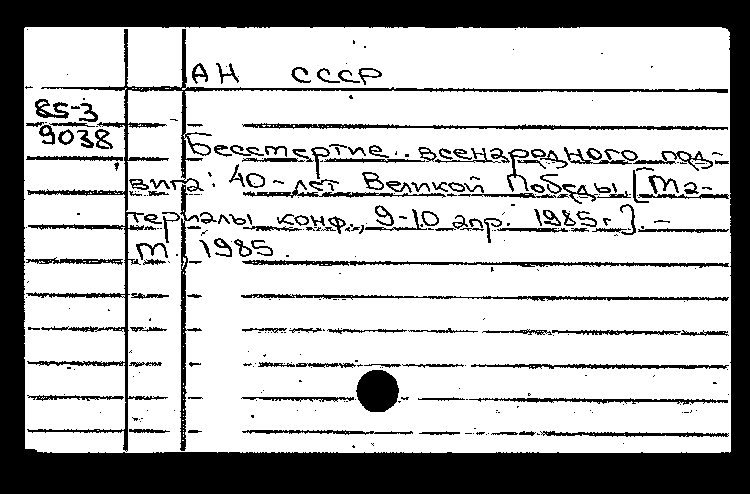 АН СССР
85-3
9038
Бессмертие всенародного под-
вига: 40-лет Великой Победы. [Ма-
териалы конф., 9-10 апр. 1985г]. –
М. 1985.